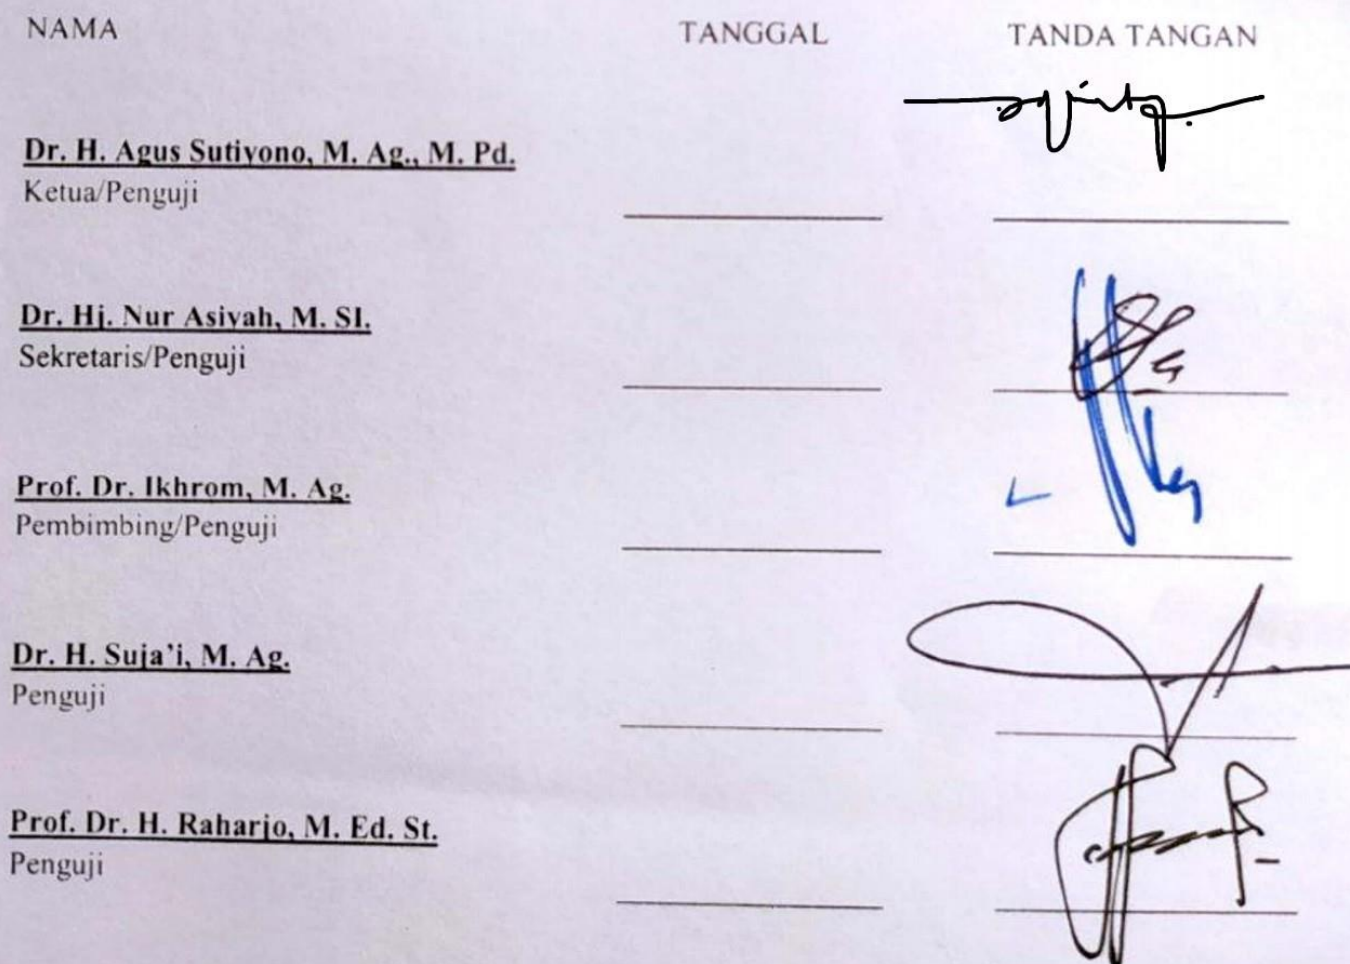 NAMA TANGGAL TANDA TANGAN
Dr. H. Agus Sutiyono, M. Ag., M. Pd.
Ketua/Penguji
Dr. Hj. Nur Asiyah, M. SI.
Sekretaris/Penguji
Prof. Dr. Ikhrom, M. Ag.
Pembimbing/Penguji
Dr. H. Suja'i, M. Ag.
Penguji
Prof. Dr. H. Raharjo, M. Ed. St.
Penguji